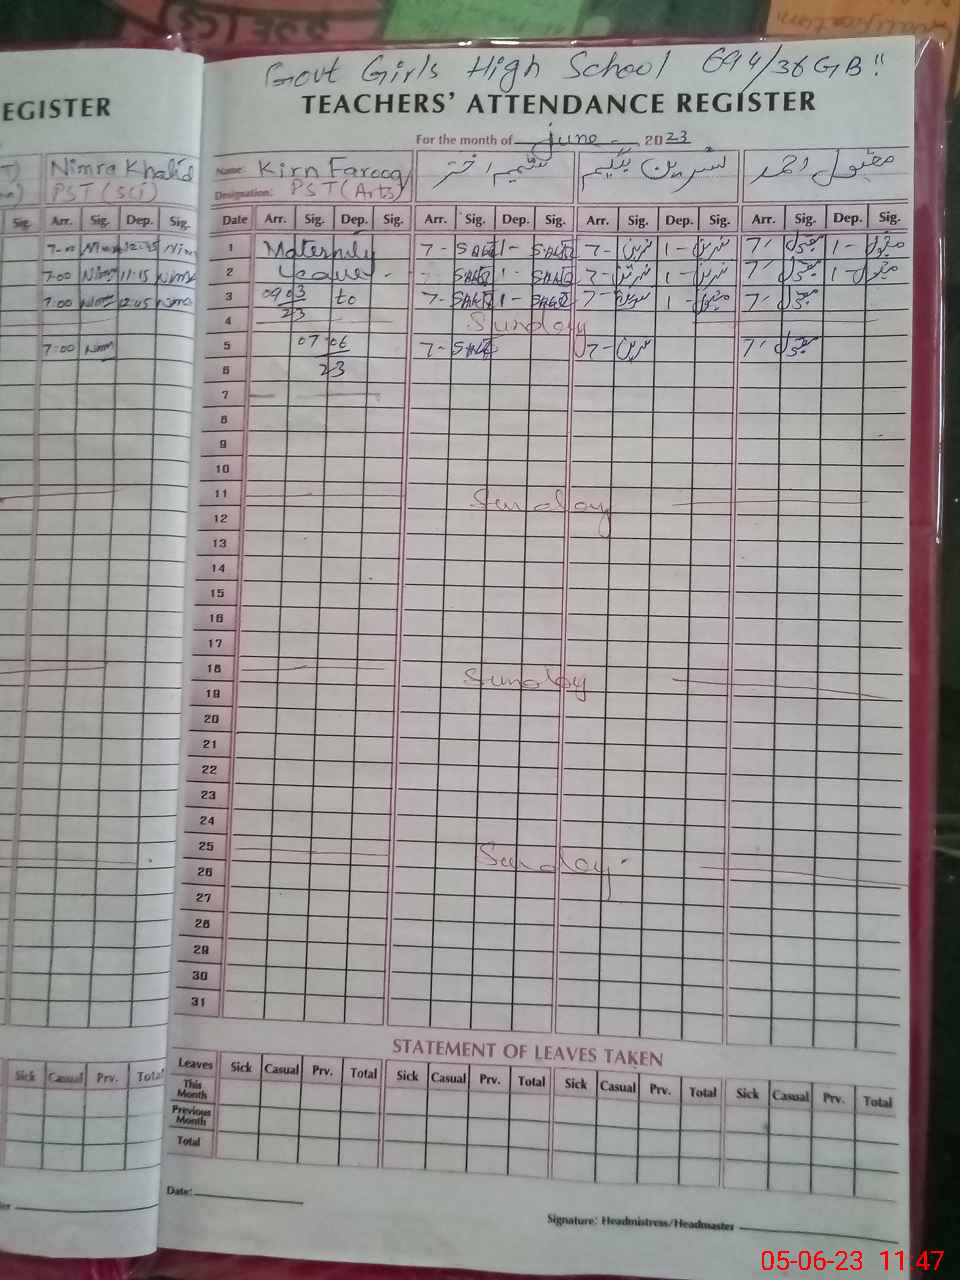 EGISTER
Nimra Khalid
PST (Sci)
Sig. Arr. Sig. Dep. Sig.
7-00 12-45
7.00 11:15
7.00 12:45
7:00
Sick Casual Prv. Total
Govt Girls High School 694/36 GB"
TEACHERS' ATTENDANCE REGISTER
For the month of June 2023
Name: Kirn Farooq شمیم اختر نسرین بیگم مقبول احمد
Designation: PST (Arts)
Date Arr. Sig. Dep. Sig. Arr. Sig. Dep. Sig. Arr. Sig. Dep. Sig. Arr. Sig. Dep. Sig.
1 Maternity 7- 1- 7- نسرین 1- نسرین 7- مقبول 1- مقبول
2 Leave - 1- 7- نسرین 1- نسرین 7- مقبول 1- مقبول
3 09 03 to 7- 1- 7- نسرین 1- 7- مقبول
23
4 Sunday
5 07-06 7- 7- نسرین 7- مقبول
6 23
7
8
9
10
11 Sunday
12
13
14
15
16
17
18 Sunday
19
20
21
22
23
24
25 Sunday
26
27
28
29
30
31
STATEMENT OF LEAVES TAKEN
Leaves Sick Casual Prv. Total Sick Casual Prv. Total Sick Casual Prv. Total Sick Casual Prv. Total
This Month
Previous Month
Total
Date:
Signature: Headmistress/Headmaster
05-06-23 11:47